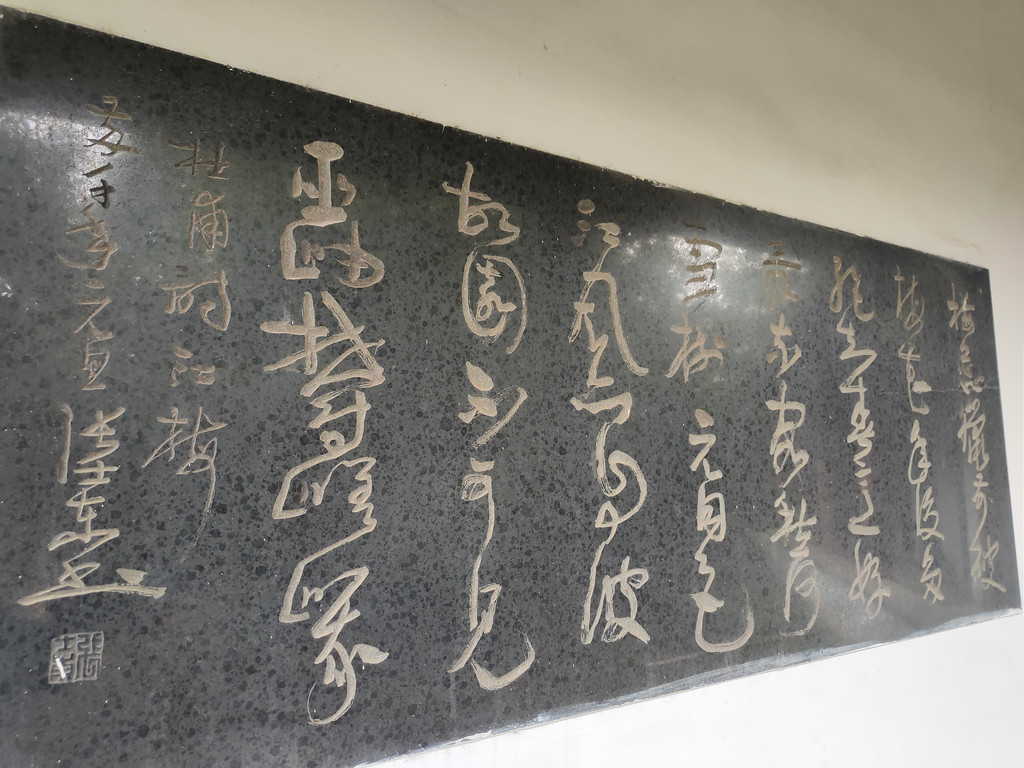 梅蕊臘前破
梅花年後多
絕知春意好
最奈客愁何
雪樹元同色
江風亦自波
故園不可見
巫岫鬱嵯峨
杜甫詩江梅